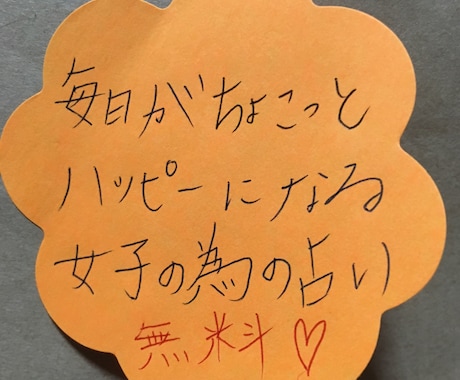 毎日がちょこっと
ハッピーになる
女子の為の占い
無料♡